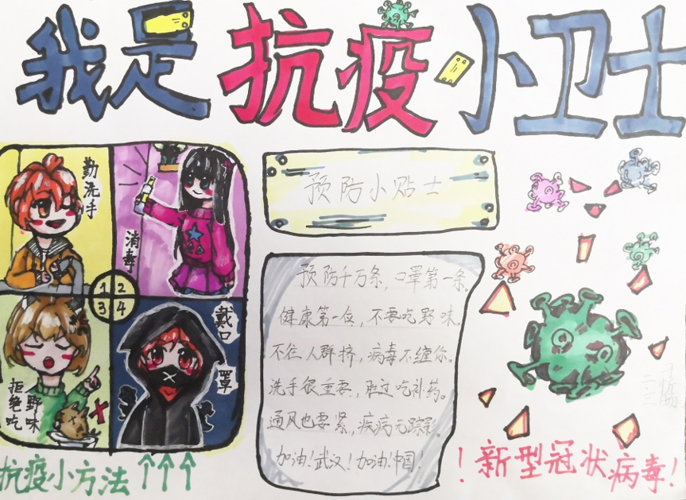 我是抗疫小卫士
勤洗手
消毒
1 2
3 4
拒绝吃野味
戴口罩
抗疫小方法↑↑↑
预防小贴士
预防千万条,口罩第一条。
健康第一位,不要吃野味。
不往人群挤,病毒不缠你。
洗手很重要,胜过吃补药。
通风也要紧,疾病无踪影。
加油!武汉!加油!中国!
!新型冠状病毒!